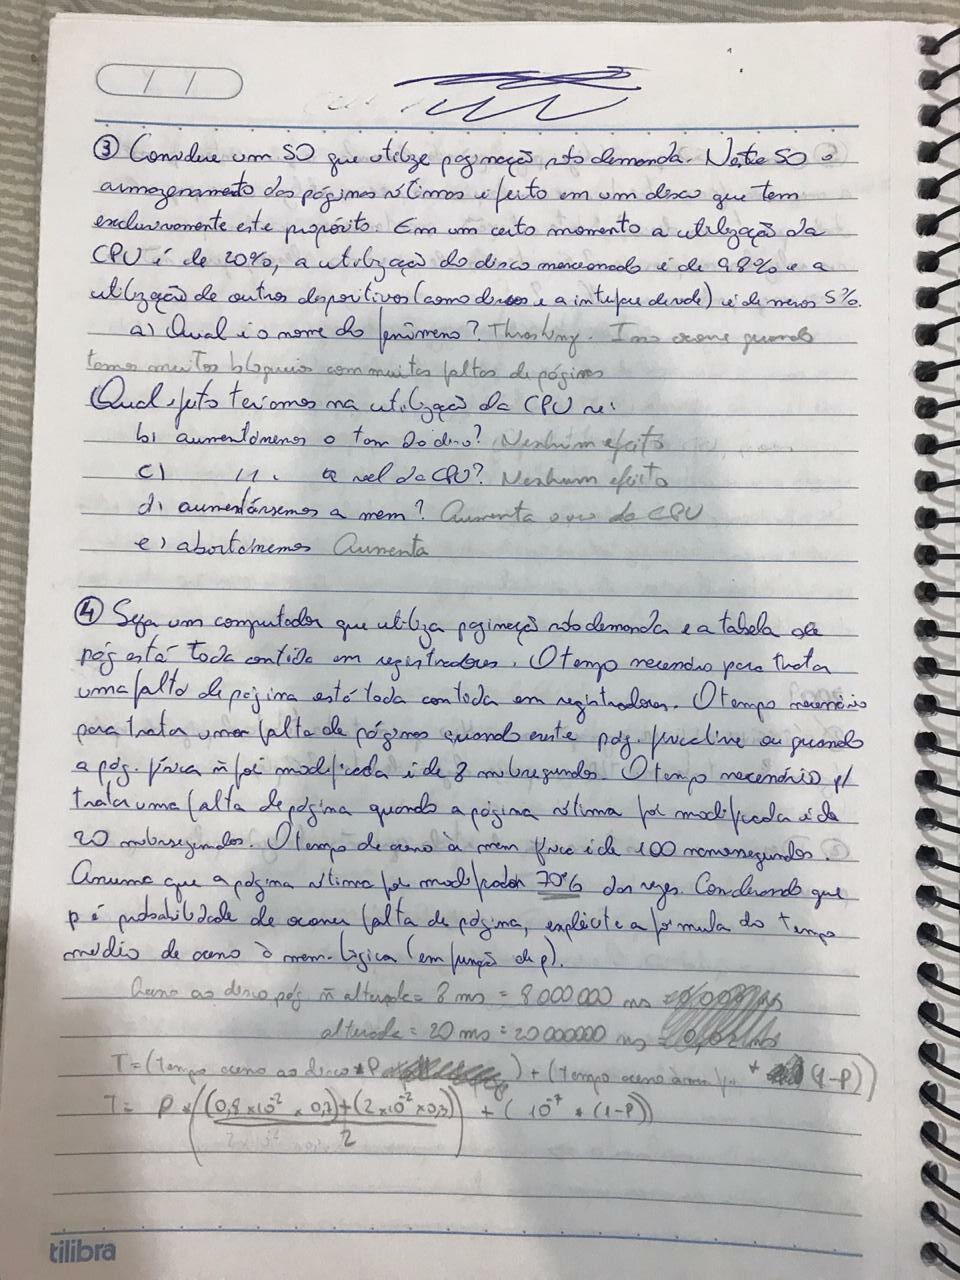 ③ Considere um SO que utilize paginação sob demanda. Neste SO o
armazenamento das páginas vítimas é feito em um disco que tem
exclusivamente este propósito. Em um certo momento a utilização da
CPU é de 20%, a utilização do disco mencionado é de 98% e a
utilização de outros dispositivos (como discos e a interface de rede) é de menos 5%.
a) Qual é o nome do fenômeno? Thrashing. Isso ocorre quando
temos muitos bloqueios com muitas faltas de páginas
Qual efeito teríamos na utilização da CPU se:
b) aumentássemos o tam do disco? Nenhum efeito
c) 11. a vel da CPU? Nenhum efeito
d) aumentássemos a mem? Aumenta o uso da CPU
e) abortássemos Aumenta
④ Seja um computador que utiliza paginação sob demanda e a tabela de
pág está toda contida em registradores. O tempo necessário para tratar
uma falta de página está toda contida em registradores. O tempo necessário
para tratar uma falta de páginas quando existe pág. física livre ou quando
a pág. física ñ foi modificada é de 8 milissegundos. O tempo necessário p/
tratar uma falta de página quando a página vítima foi modificada é de
20 milissegundos. O tempo de acesso à mem física é de 100 nanossegundos.
Assuma que a página vítima foi modificada 70% das vezes. Considerando que
p é probabilidade de ocorrer falta de página, explicite a fórmula do tempo
médio de acesso à mem. lógica (em função de p).
Acesso ao disco pág ñ alterada = 8 ms = 8 000 000 ns
alterada = 20 ms = 20 000000 ns
T = (tempo acesso ao disco * P ) + (tempo acesso à mem * (1-P))
T = P * ((0,8 × 10⁻² × 0,7) + (2 × 10⁻² × 0,3)) / 2 + (10⁻⁷ * (1-P))
tilibra